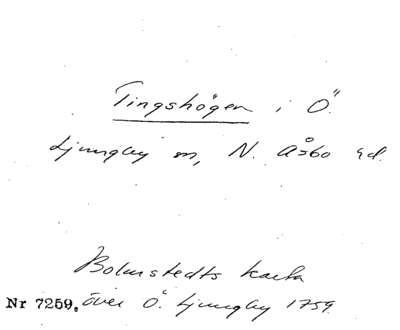 Tingshögen i Ö.
Ljungby sn, N. Åsbo hd.
Bolmstedts karta
Nr 7259. över Ö. Ljungby 1759.